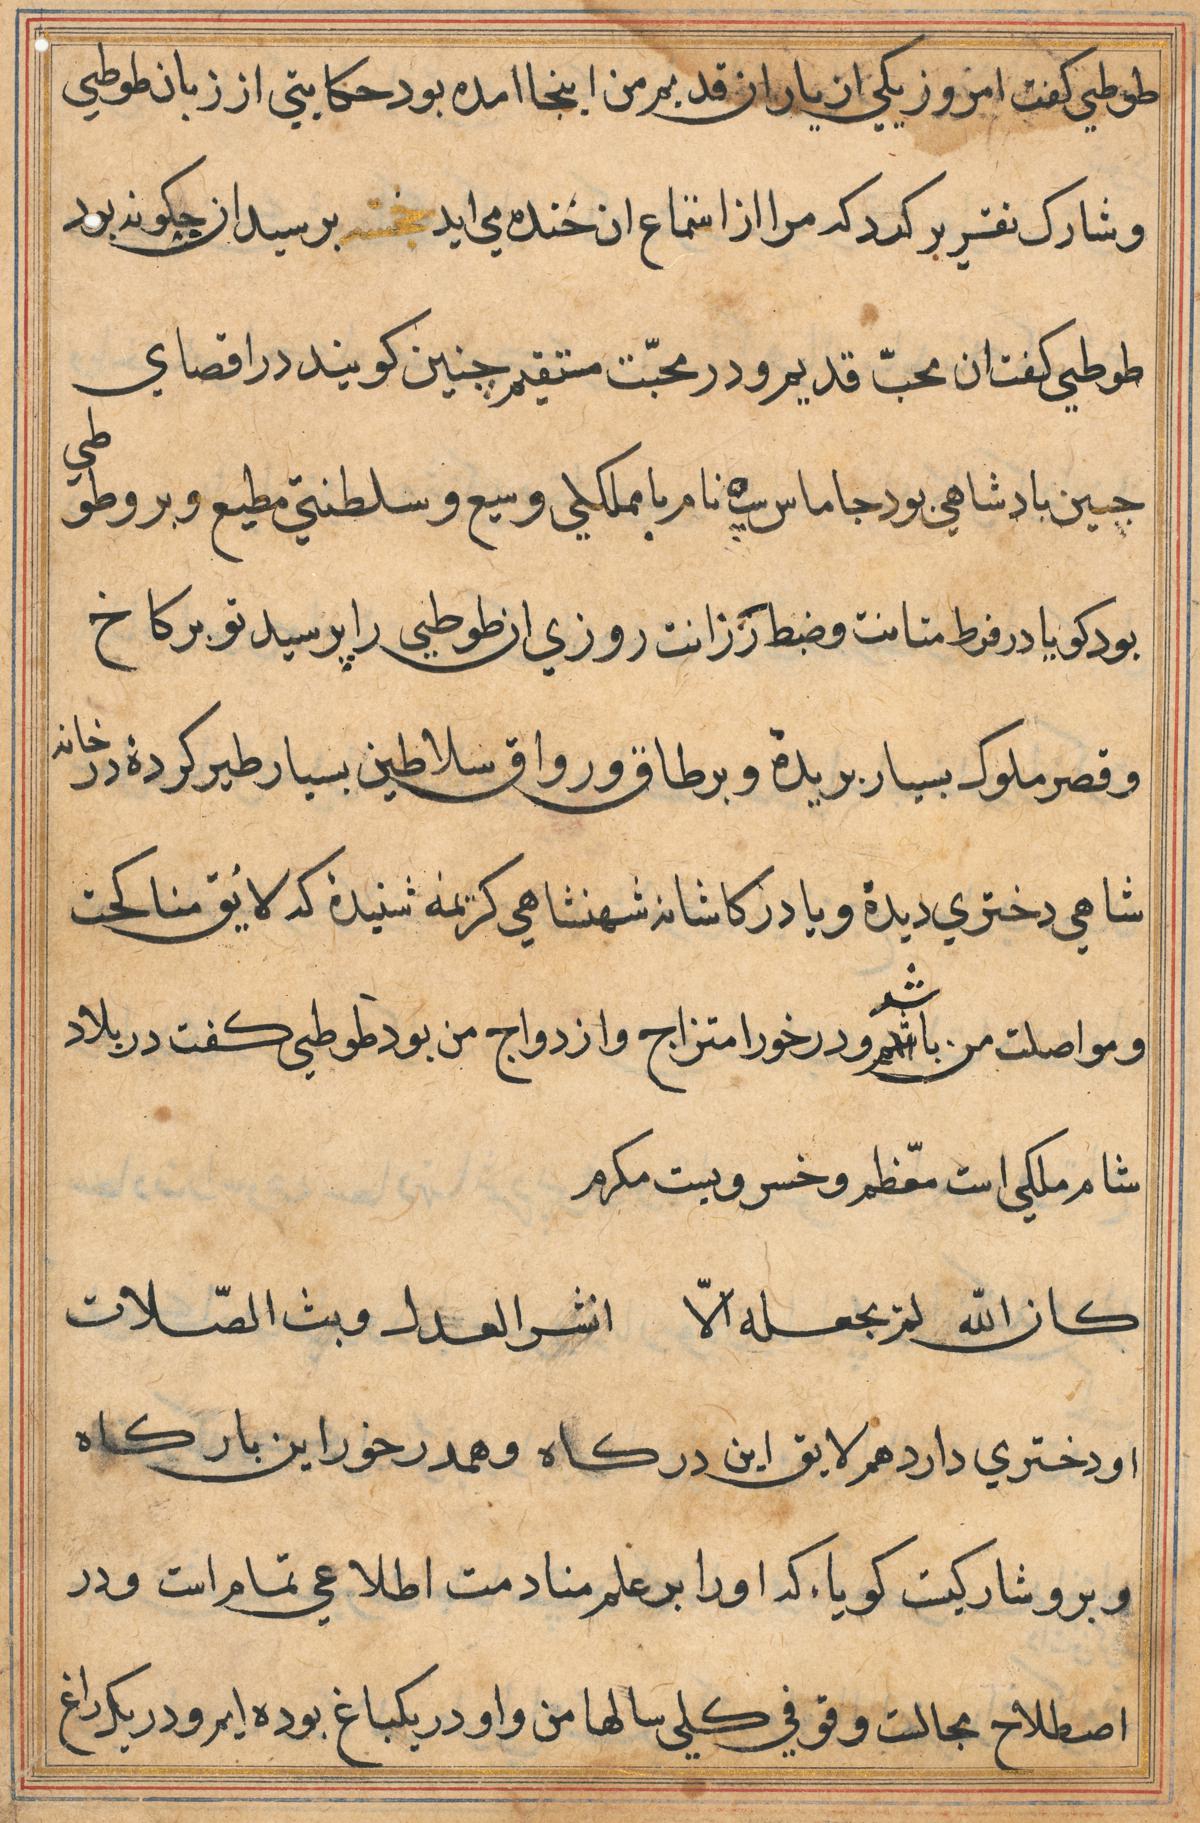 طوطی کفت امروز یکی از یاران قدیم من اینجا امده بود حکایتی از زبان طوطی
و شارک تقریر کرد که مرا از استماع ان خنده می اید خجسته برسید ان چکونه بود
طوطی کفت ان محبّ قدیم و در محبّت مستقیم چنین کویند در اقصای
چین بادشاهی بود جاماس نام با مملکتی وسیع و سلطنتی مطیع و برو طوطی
بود کویا در فرط متانت و ضبط رزانت روزی ان طوطی را پرسید تو بر کاخ
و قصر ملوک بسیار بریدهٔ و بر طاق و رواق سلاطین بسیار طیر کردهٔ در خانه
شاهی دختری دیدهٔ و یا در کاشانه شهنشاهی کریمه شنیدهٔ که لایق مناکحت
و مواصلت من باشد و در خور امتزاج و ازدواج من بود طوطی کفت در بلاد
شام ملکی است معّظم و خسرویست مکرم
کان الله لم یجعله الّا انشر العدل و بث الصّلات
او دختری دارد هم لایق این درکاه و هم در خور این بارکاه
و برو شارکیست کویاء که او را بر علم منادمت اطلاعی تمام است و در
اصطلاح مجالت وقوفی کلی سالها من و او در یکباغ بوده ایم و در یک راغ